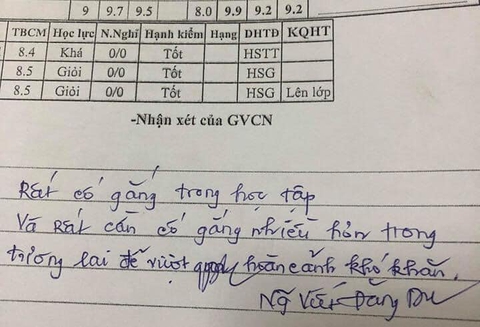 9 9.7 9.5 8.0 9.9 9.2 9.2
TBCM Học lực N.Nghỉ Hạnh kiểm Hạng DHTĐ KQHT
8.4 Khá 0/0 Tốt HSTT
8.5 Giỏi 0/0 Tốt HSG
8.5 Giỏi 0/0 Tốt HSG Lên lớp
-Nhận xét của GVCN
Rất cố gắng trong học tập
Và rất cần cố gắng nhiều hơn trong
tương lai để vượt qua hoàn cảnh khó khăn.
Viết Đăng Du